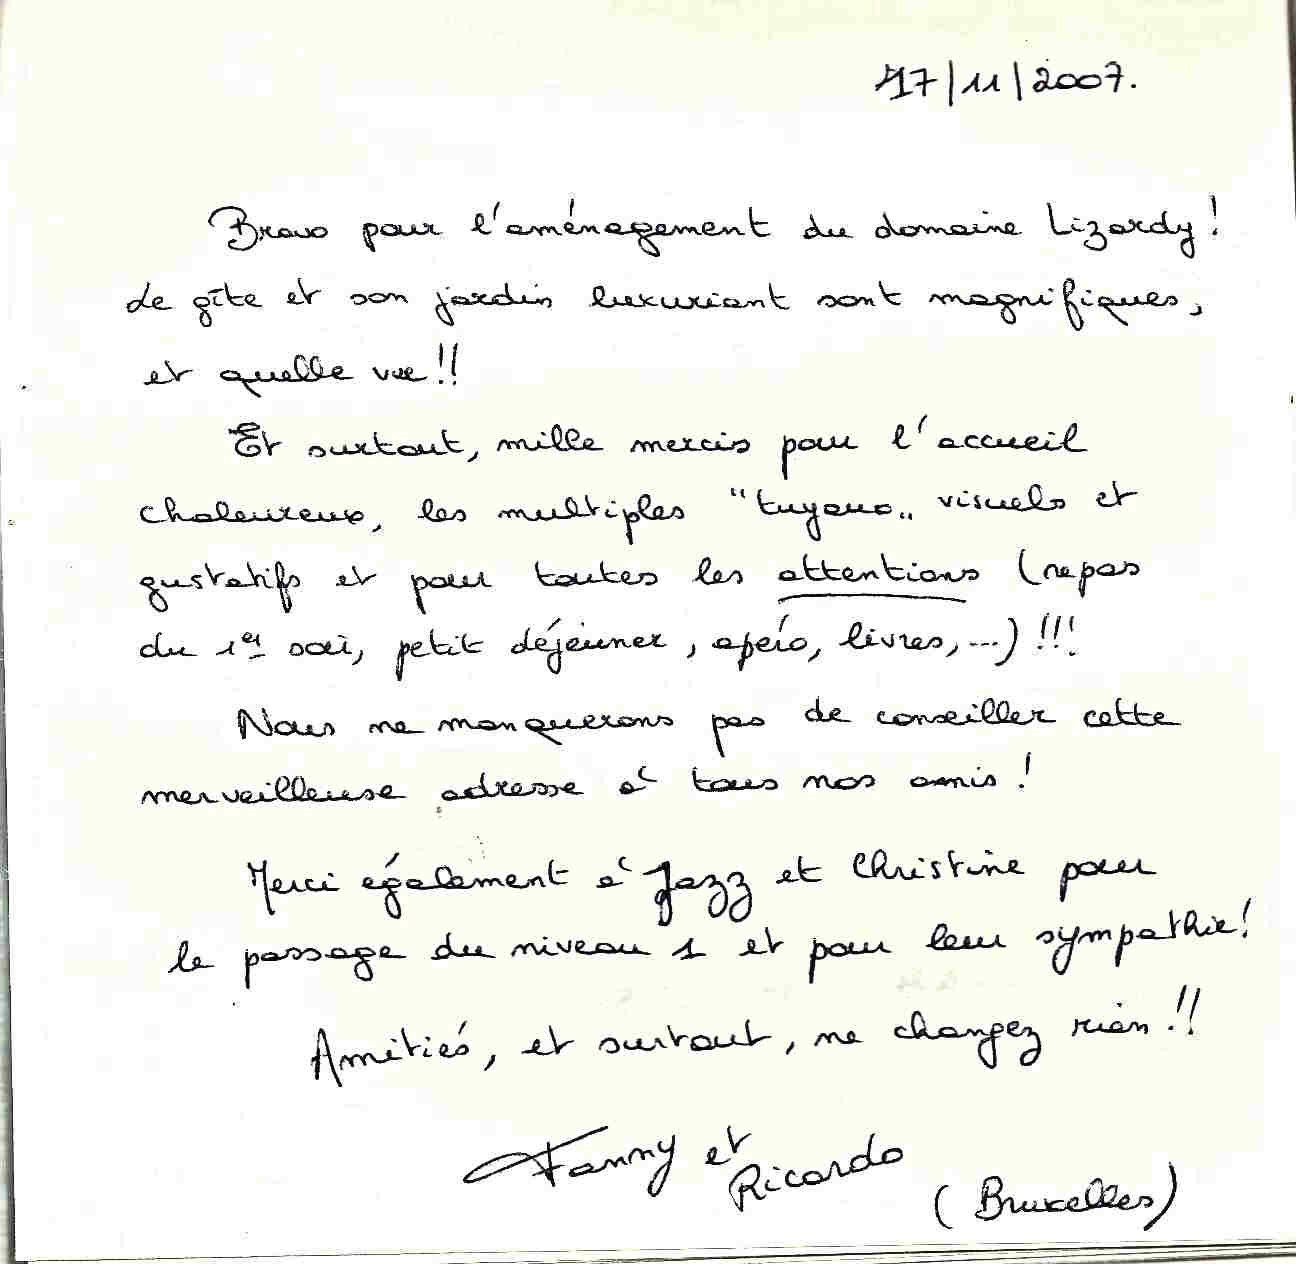 17/11/2007.
Bravo pour l'aménagement du domaine Lizardy!
Le gîte et son jardin luxuriant sont magnifiques,
et quelle vue!!
Et surtout, mille mercis pour l'accueil
chaleureux, les multiples "tuyaux" visuels et
gustatifs et pour toutes les attentions (repas
du 1er soir, petit déjeuner, apéro, livres, ...) !!!
Nous ne manquerons pas de conseiller cette
merveilleuse adresse à tous nos amis!
Merci également à Jazz et Christine pour
le passage du niveau 1 et pour leur sympathie!
Amitiés, et surtout, ne changez rien!!
Fanny et
Ricardo
(Bruxelles)